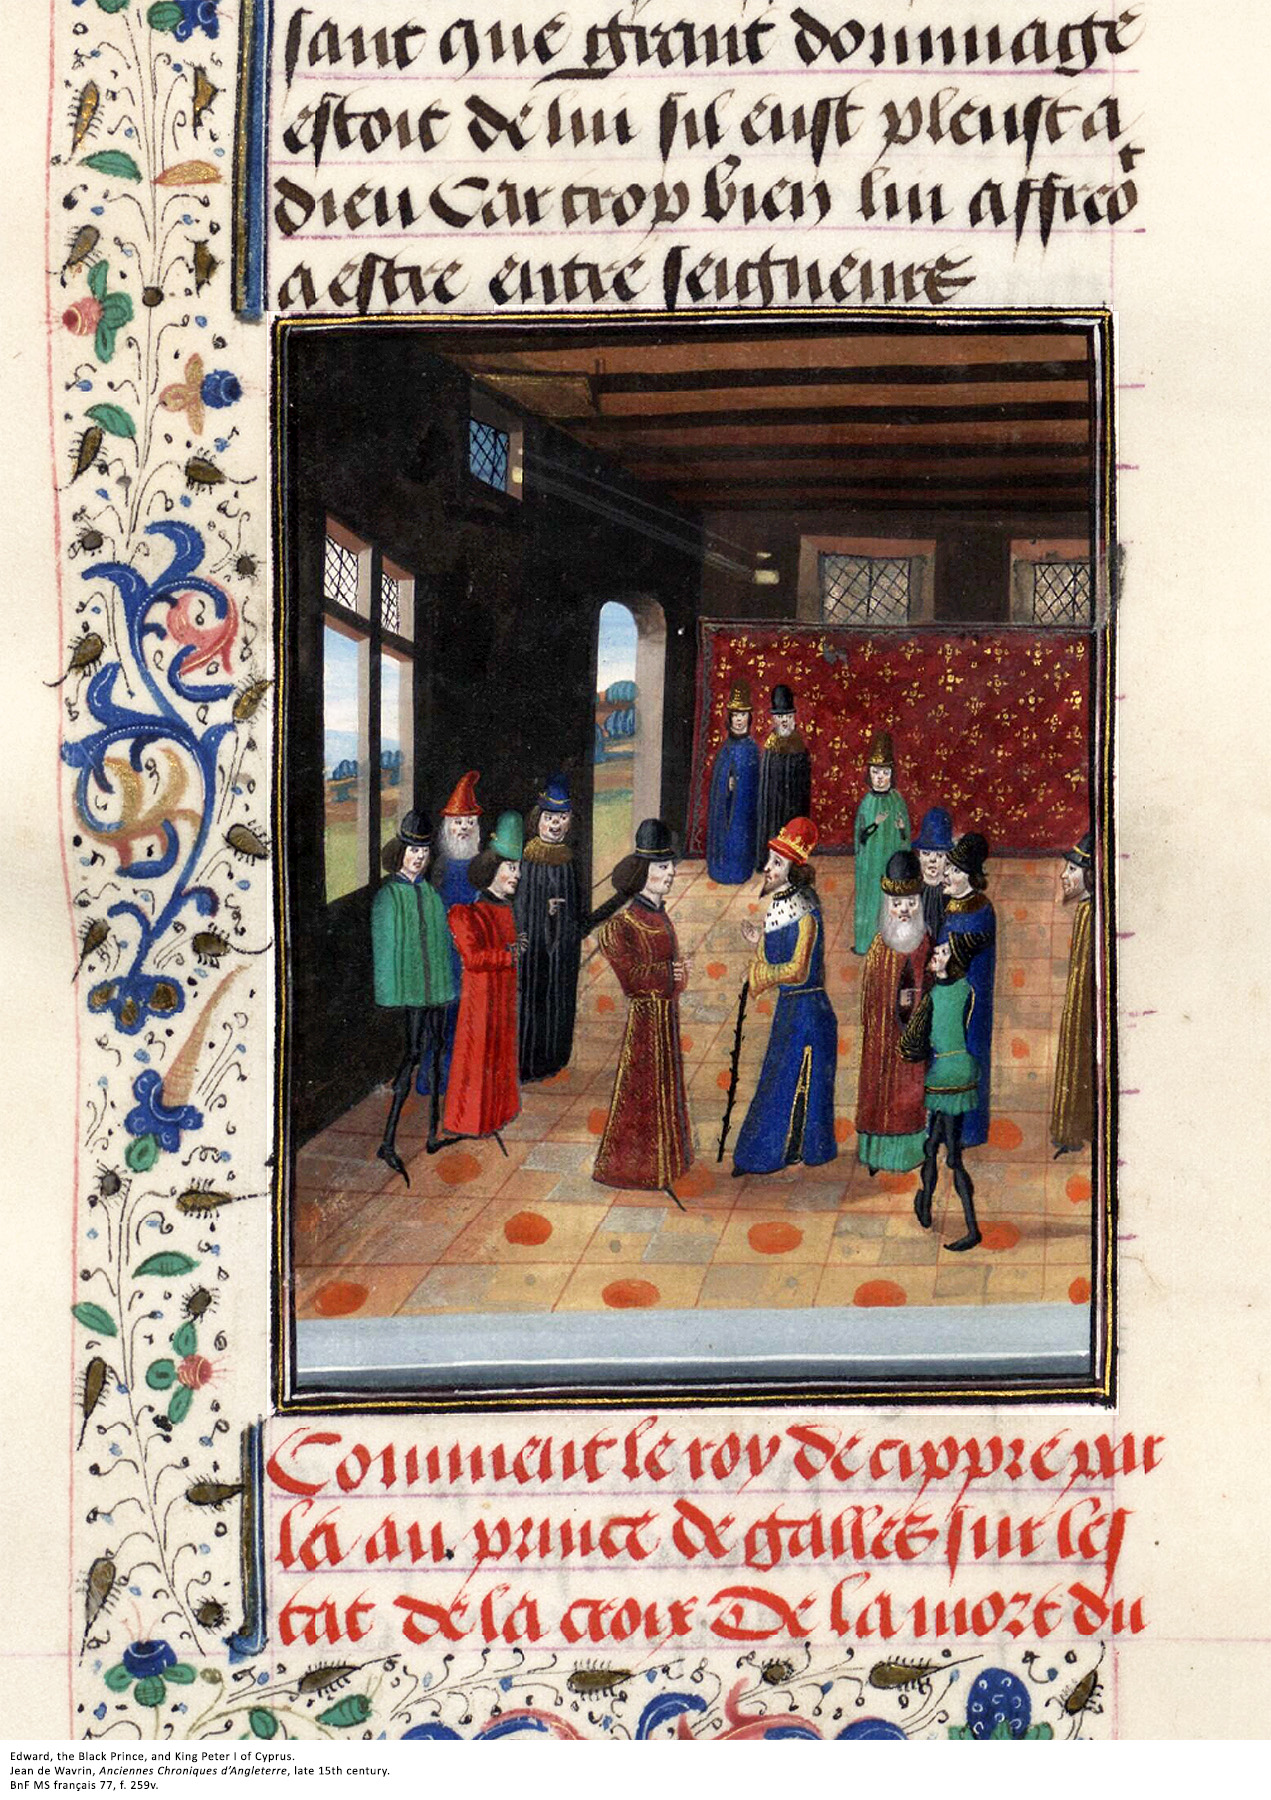 sant que grant dommage
estoit de lui sil eust pleust a
dieu Car trop bien lui affreōt
a estre entre seigneurs
Comment le roy de cippre par
la au prince de galles sur les
tat de la croix De la mort du
Edward, the Black Prince, and King Peter I of Cyprus.
Jean de Wavrin, Anciennes Chroniques d'Angleterre, late 15th century.
BnF MS français 77, f. 259v.